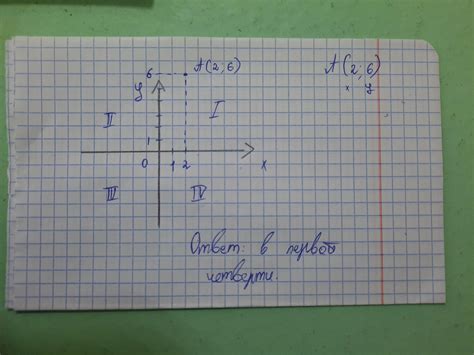 6 A(2;6)
A(2;6)
x y
y
II
I
1
0 1 2
x
III
IV
Ответ: в первой
четверти.